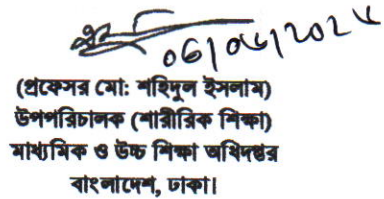 (প্রফেসর মো: শহিদুল ইসলাম)
উপপরিচালক (শারীরিক শিক্ষা)
মাধ্যমিক ও উচ্চ শিক্ষা অধিদপ্তর
বাংলাদেশ, ঢাকা।